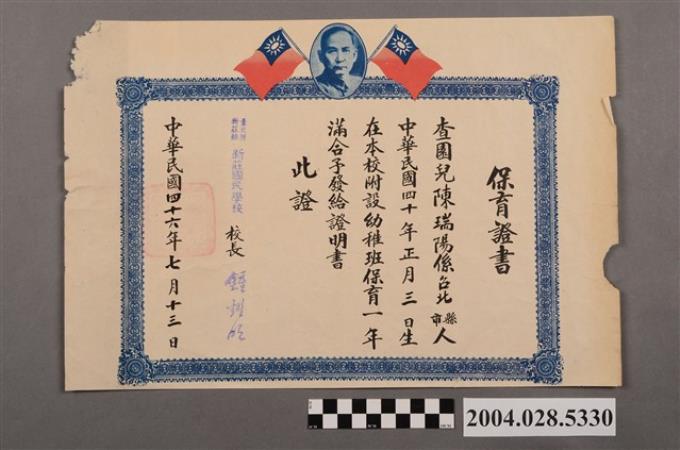 保育證書
查園兒陳瑞陽係台北縣市人
中華民國四十年正月三日生
在本校附設幼稚班保育一年
滿合予發給證明書
此證
臺北縣
新莊鎮
新莊國民學校
校長
中華民國四十六年七月十三日
2004.028.5330